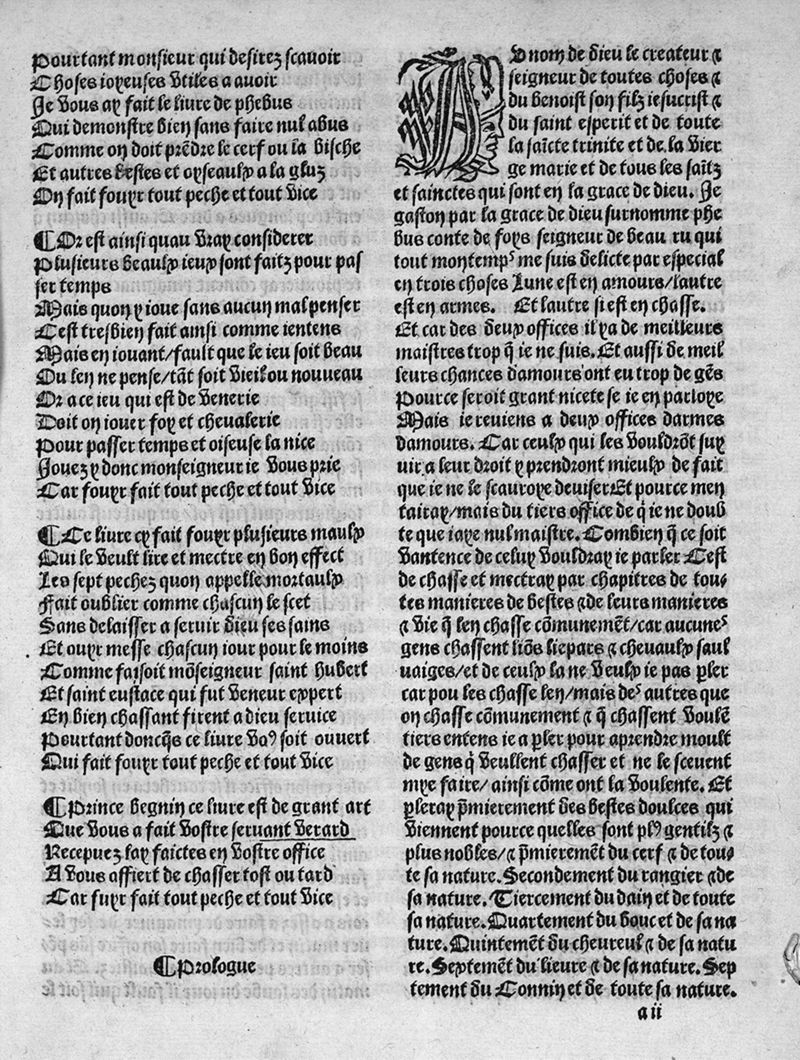 Pourtant monsieur qui desirez scauoir
Choses ioyeuses vtiles a auoir
Je vous ay fait le liure de phebus
Qui demonstre bien sans faire nul abus
Comme on doit prẽdre le cerf ou la bische
Et autres bestes et oyseaulx a la gluz
On fait fouyr tout peche et tout vice
¶Or est ainsi quau vray considerer
Plusieurs beaulx ieux sont faitz pour pas
ser temps
Mais quon y ioue sans aucun mal penser
Cest tresbien fait ainsi comme ientens
Mais en iouant/fault que le ieu soit beau
Ou len ne pense/tãt soit vieil ou nouueau
Or a ce ieu qui est de venerie
Doit on iouer foy et cheualerie
Pour passer temps et oiseuse la nice
Jouez y donc monseigneur ie vous prie
Car fouyr fait tout peche et tout vice
¶Ce liure cy fait fouyr plusieurs maulx
Qui le veult lire et mectre en bon effect
Les sept pechez quon appelle mortaulx
Fait oublier comme chascun le scet
Sans delaisser a seruir dieu ses sains
Et ouyr messe chascun iour pour le moins
Comme faisoit mõseigneur saint hubert
Et saint eustace qui fut veneur expert
En bien chassant firent a dieu seruice
Pourtant doncq̃s ce liure vaꝰ soit ouuert
Qui fait fouyr tout peche et tout vice
¶Prince begnin ce liure est de grant art
Que vous a fait vostre seruant verard
Recepuez lay faictes en vostre office
A vous affiert de chasser tost ou tard
Car fuyr fait tout peche et tout vice
¶Prologue
AV nom de dieu le createur ⁊
seigneur de toutes choses ⁊
du benoist son filz iesucrist ⁊
du saint esperit et de toute
la saĩcte trinite et de la vier
ge marie et de tous les saĩtz
et sainctes qui sont en la grace de dieu. Je
gaston par la grace de dieu surnomme phe
bus conte de foys seigneur de beau ru qui
tout mon tempˢ me suis delicte par especial
en trois choses Lune est en amours/lautre
est en armes. Et lautre si est en chasse.
Et car des deux offices il ya de meilleurs
maistres trop q̃ ie ne suis. Et aussi de meil
leurs chances damours ont eu trop de gẽs
Pource seroit grant nicete se ie en parloye
Mais ie reuiens a deux offices darmes
damours. Car ceulx qui les vouldrõt suy
uir a leur droit y prendront mieulx de fait
que ie ne le scauroye deuiser Et pource men
tairay/mais du tiers office de q̃ ie ne doub
te que iaye nul maistre. Combien q̃ ce soit
vantence de celuy vouldray ie parler Cest
de chasse et mectray par chapitres de tou⸗
tes manieres de bestes ⁊ de leurs manieres
⁊ vie q̃ len chasse cõmunemẽt/car aucuneˢ
gens chassent liõs liepars ⁊ cheuaulx saul
uaiges/et de ceulx la ne veulx ie pas p̱ler
car pou les chasse len/mais deˢ autres que
on chasse cõmunement ⁊ q̃ chassent voulẽ
tiers entens ie a p̱ler pour aprendre moult
de gens q̃ veullent chasser et ne le sceuent
mye faire/ainsi cõme ont la voulente. Et
p̱leray p̃mierement des bestes doulces qui
viennent pource quelles sont plꝰ gentilz ⁊
plus nobles/⁊ p̃mieremẽt du cerf ⁊ de tou⸗
te sa nature. Secondement du rangier ⁊ de
sa nature. Tiercement du dain et de toute
sa nature. Quartement du bouc et de sa na
ture. Quintemẽt du cheureul ⁊ de sa natu
re. Septemẽt du lieure ⁊ de sa nature. Sep
tement du Connin et de toute sa nature.
a ii